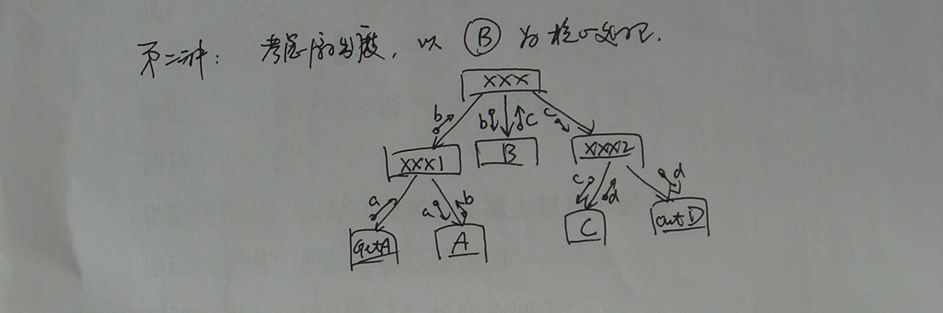 第二种: 考虑内的出度, 以 B 为核心处理.
XXX
b b C c
XXX1 B XXX2
a a b c d d
GetA A C OutD